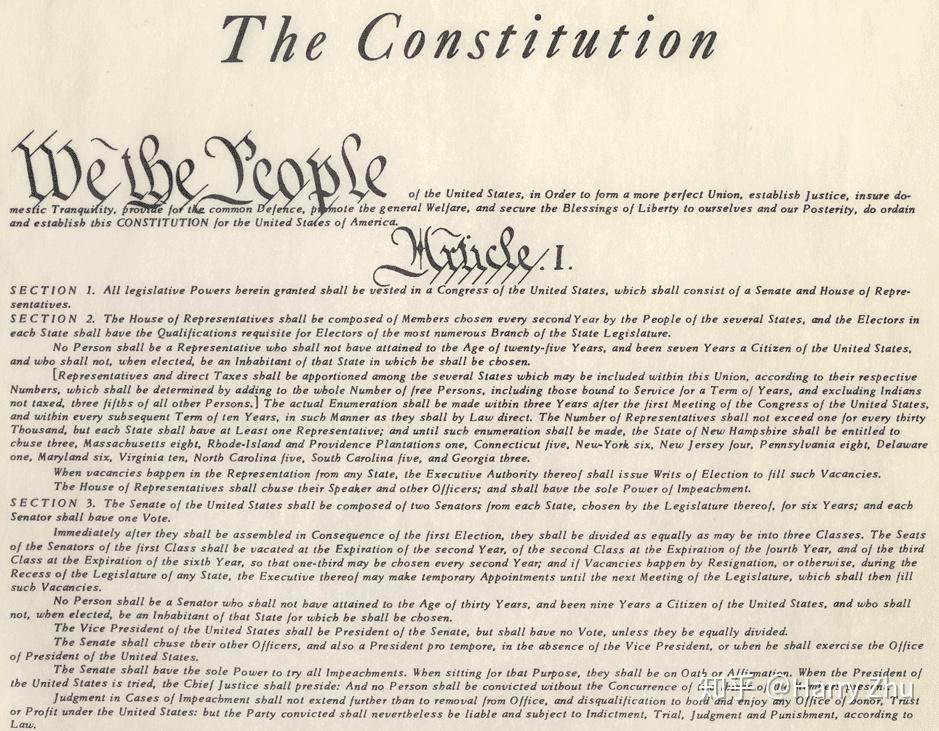 The Constitution
We the People of the United States, in Order to form a more perfect Union, establish Justice, insure do-
mestic Tranquility, provide for the common Defence, promote the general Welfare, and secure the Blessings of Liberty to ourselves and our Posterity, do ordain
and establish this CONSTITUTION for the United States of America.
Article. I.
SECTION 1. All legislative Powers herein granted shall be vested in a Congress of the United States, which shall consist of a Senate and House of Repre-
sentatives.
SECTION 2. The House of Representatives shall be composed of Members chosen every second Year by the People of the several States, and the Electors in
each State shall have the Qualifications requisite for Electors of the most numerous Branch of the State Legislature.
No Person shall be a Representative who shall not have attained to the Age of twenty-five Years, and been seven Years a Citizen of the United States,
and who shall not, when elected, be an Inhabitant of that State in which he shall be chosen.
[Representatives and direct Taxes shall be apportioned among the several States which may be included within this Union, according to their respective
Numbers, which shall be determined by adding to the whole Number of free Persons, including those bound to Service for a Term of Years, and excluding Indians
not taxed, three fifths of all other Persons.] The actual Enumeration shall be made within three Years after the first Meeting of the Congress of the United States,
and within every subsequent Term of ten Years, in such Manner as they shall by Law direct. The Number of Representatives shall not exceed one for every thirty
Thousand, but each State shall have at Least one Representative; and until such enumeration shall be made, the State of New Hampshire shall be entitled to
chuse three, Massachusetts eight, Rhode-Island and Providence Plantations one, Connecticut five, New-York six, New Jersey four, Pennsylvania eight, Delaware
one, Maryland six, Virginia ten, North Carolina five, South Carolina five, and Georgia three.
When vacancies happen in the Representation from any State, the Executive Authority thereof shall issue Writs of Election to fill such Vacancies.
The House of Representatives shall chuse their Speaker and other Officers; and shall have the sole Power of Impeachment.
SECTION 3. The Senate of the United States shall be composed of two Senators from each State, chosen by the Legislature thereof, for six Years; and each
Senator shall have one Vote.
Immediately after they shall be assembled in Consequence of the first Election, they shall be divided as equally as may be into three Classes. The Seats
of the Senators of the first Class shall be vacated at the Expiration of the second Year, of the second Class at the Expiration of the fourth Year, and of the third
Class at the Expiration of the sixth Year, so that one-third may be chosen every second Year; and if Vacancies happen by Resignation, or otherwise, during the
Recess of the Legislature of any State, the Executive thereof may make temporary Appointments until the next Meeting of the Legislature, which shall then fill
such Vacancies.
No Person shall be a Senator who shall not have attained to the Age of thirty Years, and been nine Years a Citizen of the United States, and who shall
not, when elected, be an Inhabitant of that State for which he shall be chosen.
The Vice President of the United States shall be President of the Senate, but shall have no Vote, unless they be equally divided.
The Senate shall chuse their other Officers, and also a President pro tempore, in the absence of the Vice President, or when he shall exercise the Office
of President of the United States.
The Senate shall have the sole Power to try all Impeachments. When sitting for that Purpose, they shall be on Oath or Affirmation. When the President of
the United States is tried, the Chief Justice shall preside: And no Person shall be convicted without the Concurrence of
Judgment in Cases of Impeachment shall not extend further than to removal from Office, and disqualification to hold and enjoy any Office of honor, Trust
or Profit under the United States: but the Party convicted shall nevertheless be liable and subject to Indictment, Trial, Judgment and Punishment, according to
Law.
知乎 @Harry Zhu